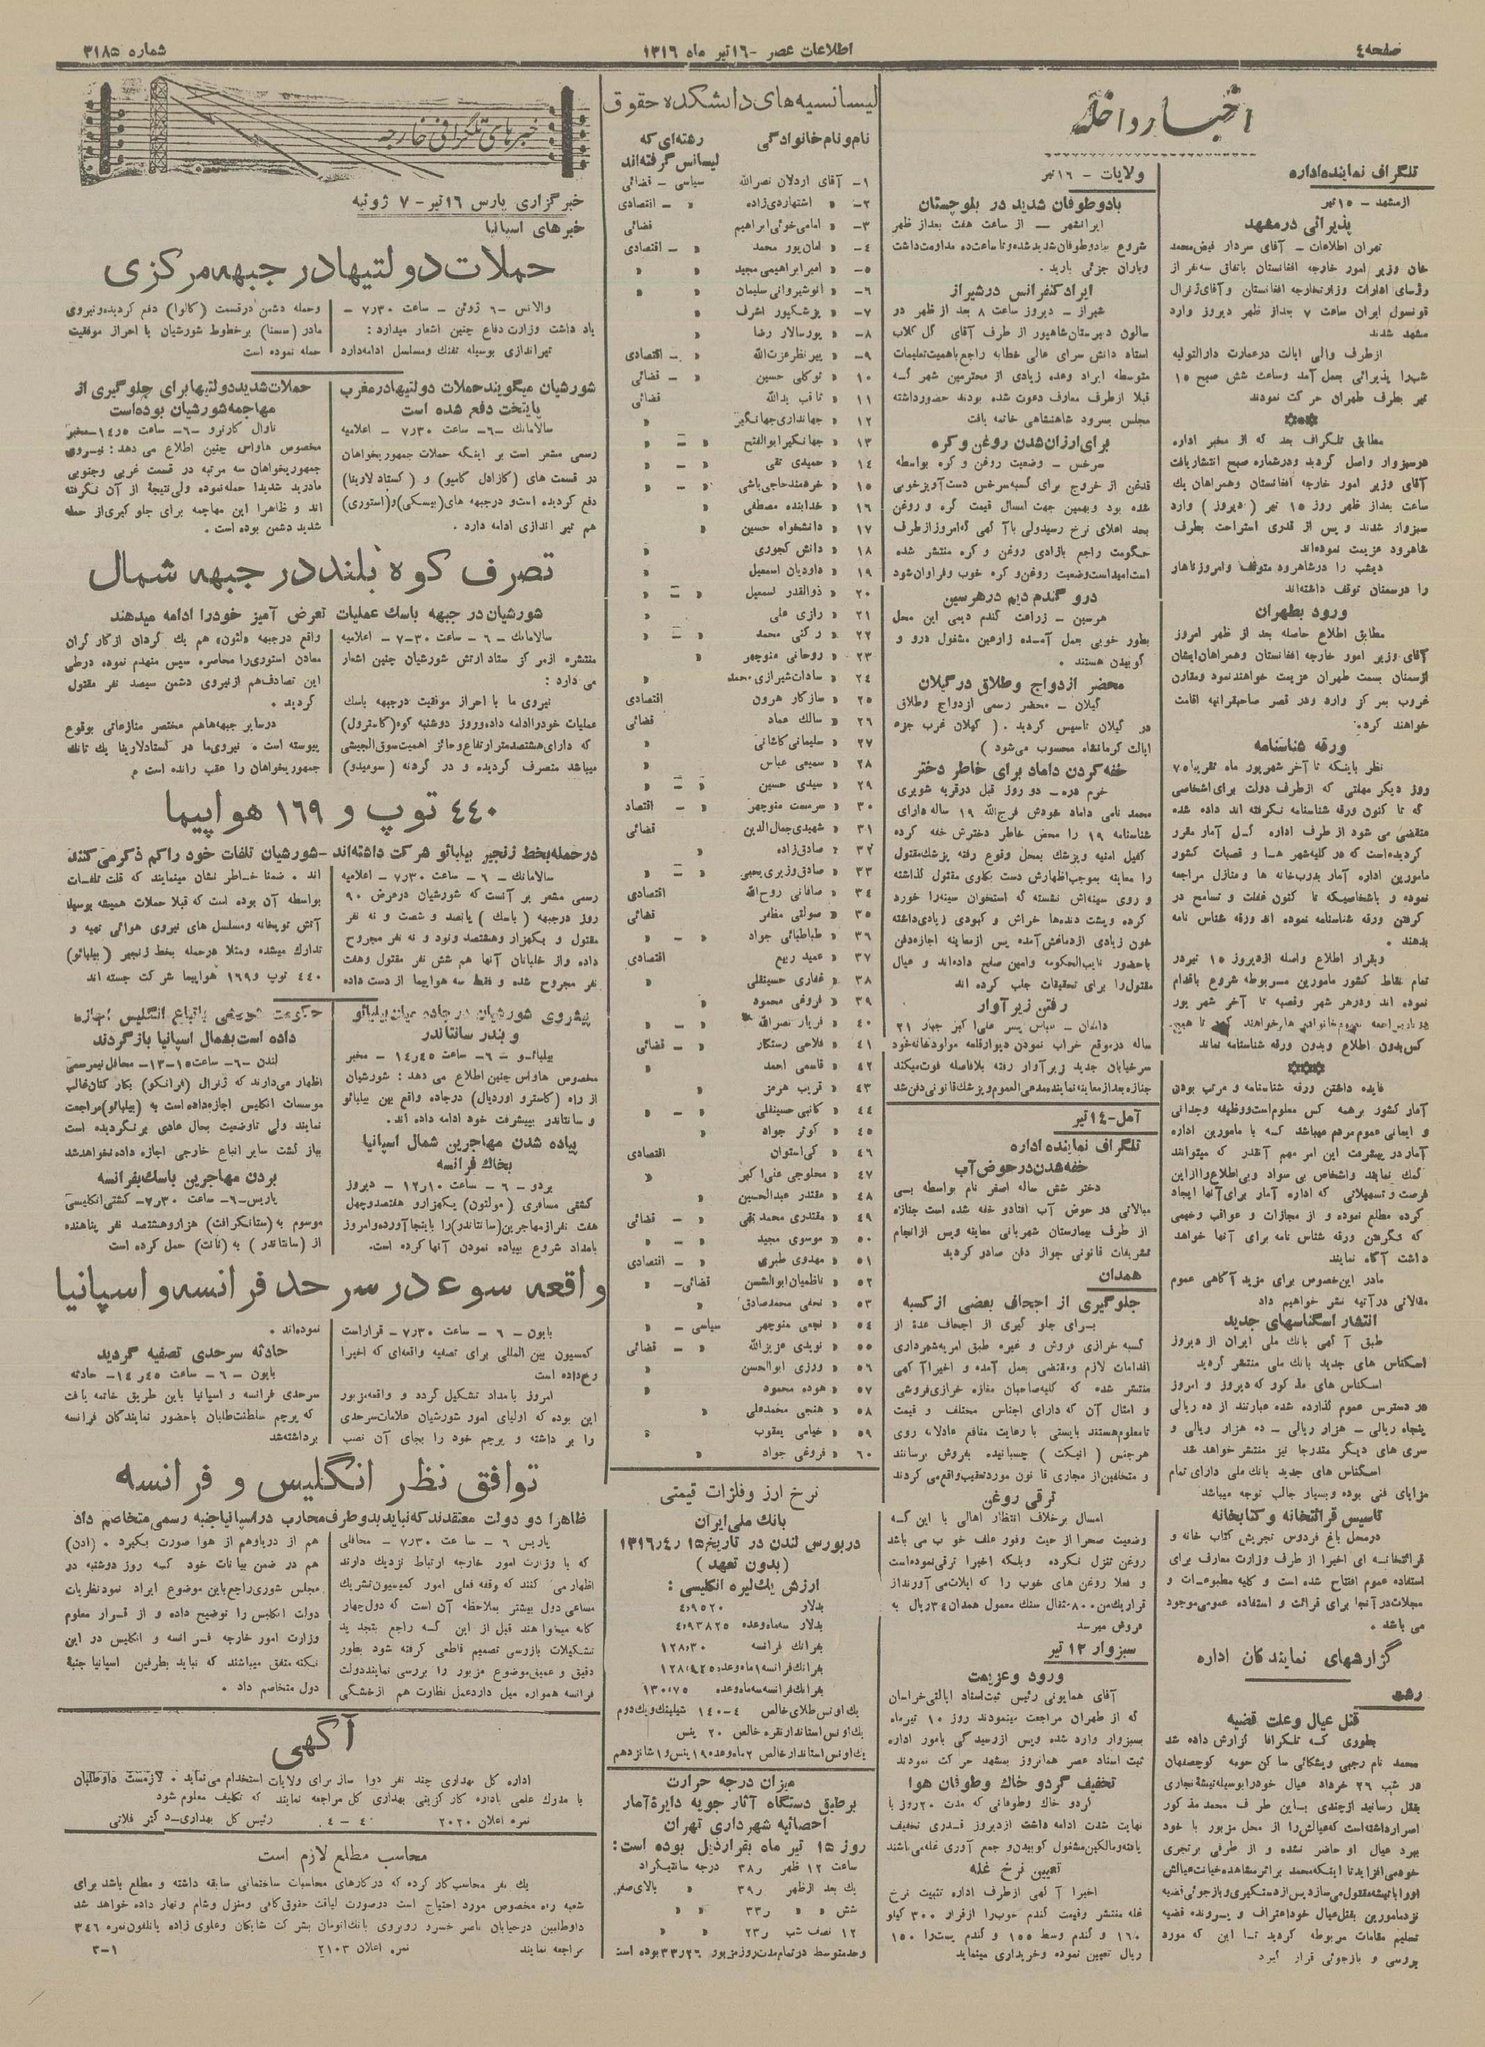 صفحه ٤
اطلاعات عصر -١٦ تیر ماه ١٣١٦
شماره ٣١٨٥
اخبار داخله
تلگراف نماینده اداره
از مشهد - ١٥ تیر
پذیرائی در مشهد
تهران اطلاعات - آقای سردار فیض محمد
خان وزیر امور خارجه افغانستان باتفاق سه نفر از
رؤسای ادارات وزارتخارجه افغانستان و آقای ژنرال
قونسول ایران ساعت ٧ بعداز ظهر دیروز وارد
مشهد شدند
از طرف والی ایالت در عمارت دارالتولیه
شب را پذیرائی بعمل آمد و ساعت شش صبح ١٥
تیر بطرف طهران حرکت نمودند
مطابق تلگراف بعد که از مخبر اداره
در سبزوار واصل گردید و در شماره صبح انتشار یافت
آقای وزیر امور خارجه افغانستان و همراهان یك
ساعت بعداز ظهر روز ١٥ تیر ( دیروز ) وارد
سبزوار شدند و پس از قدری استراحت بطرف
شاهرود عزیمت نموده‌اند
دیشب را در شاهرود متوقف و امروز ناهار
را در سمنان توقف داشته‌اند
ورود بطهران
مطابق اطلاع حاصله بعد از ظهر امروز
آقای وزیر امور خارجه افغانستان و همراهان ایشان
از سمنان بسمت طهران عزیمت خواهند نمود و مقارن
غروب بمرکز وارد و در قصر صاحبقرانیه اقامت
خواهند کرد.
ورقه شناسنامه
نظر باینکه تا آخر شهریور ماه تقریبا ٧٥
روز دیگر مهلتی که از طرف دولت برای اشخاصی
که تا کنون ورقه شناسنامه نگرفته اند داده شده
منقضی می شود از طرف اداره کل آمار مقرر
گردیده است که در کلیه شهر ها و قصبات کشور
مامورین اداره آمار بدرب خانه ها و منازل مراجعه
نموده و باشخاصیکه تا کنون غفلت و تسامح در
گرفتن ورقه شناسنامه نموده اند ورقه شناس نامه
بدهند .
وبقرار اطلاع واصله از دیروز ١٥ تیر در
تمام نقاط کشور مامورین مربوطه شروع باقدام
نموده اند و در هر شهر و قصبه تا آخر شهریور
کس بدون اطلاع و بدون ورقه شناسنامه نماند
فایده داشتن ورقه شناسنامه و مرتب بودن
آمار کشور بر همه کس معلوم است و وظیفه وجدانی
و ایمانی عموم مردم میباشد که با مامورین اداره
آمار در پیشرفت این امر مهم آنقدر که میتوانند
کمك نمایند و اشخاص بی سواد و بی اطلاع را از این
فرصت و تسهیلاتی که اداره آمار برای آنها ایجاد
کرده مطلع نموده و از مجازات و عواقب وخیمی
که نگرفتن ورقه شناس نامه برای آنها خواهد
داشت آگاه نمایند
ما در این خصوص برای مزید آگاهی عموم
مقالاتی در آتیه نشر خواهیم داد
انتشار اسگناسهای جدید
طبق آگهی بانك ملی ایران از دیروز
اسکناس های جدید بانك ملی منتشر گردید
اسکناس های مذکور که دیروز و امروز
در دسترس عموم گذارده شده عبارتند از ده ریالی
پنجاه ریالی - هزار ریالی - ده هزار ریالی و
سری های دیگر متدرجا نیز منتشر خواهد شد
اسکناس های جدید بانك ملی دارای تمام
مزایای فنی بوده و بسیار جالب توجه میباشد
تاسیس قرائتخانه و کتابخانه
در محل باغ فردوس تجریش کتاب خانه و
قرائتخانه ای اخیرا از طرف وزارت معارف برای
استفاده عموم افتتاح شده است و کلیه مطبوعات و
مجلات در آنجا برای قرائت و استفاده عمومی موجود
می باشد .
گزارشهای نمایندگان اداره
رشت
قتل عیال و علت قضیه
بطوری که تلگرافا گزارش داده شد
محمد نام رجبی ویشکائی ساکن حومه کوچصفهان
در شب ٢٦ خرداد عیال خود را بوسیله تیشه نجاری
بقتل رسانید از چندی باین طرف محمد مذکور
اصرار داشته است که عیالش را از محل مزبور با خود
ببرد عیال او حاضر نشده و از طرفی برتجری
خود می افزاید تا اینکه محمد بر اثر مشاهده خیانت عیالش
اورا با تیشه مقتول می سازد پس از دستگیری و بازجوئی قضیه
نزد مامورین بقتل عیال خود اعتراف و پرونده قضیه
تسلیم مقامات مربوطه گردید تا این که مورد
بررسی و بازجوئی قرار گیرد
ولایات - ١٦ تیر
باد و طوفان شدید در بلوچستان
ایرانشهر — از ساعت هفت بعداز ظهر
شروع بباد و طوفان شدید شده و تا ساعت ده مداومت داشت
و باران جزئی بارید .
ایراد کنفرانس در شیراز
شیراز - دیروز ساعت ٨ بعد از ظهر در
سالون دبیرستان شاهپور از طرف آقای گل گلاب
استاد دانش سرای عالی خطابه راجع باهمیت تعلیمات
متوسطه ایراد و عده زیادی از محترمین شهر که
قبلا از طرف معارف دعوت شده بودند حضور داشته
مجلس بسرود شاهنشاهی خاتمه یافت
برای ارزان شدن روغن و کره
سرخس - وضعیت روغن و کره بواسطه
قدغن از خروج برای کسبه سرخس دست آویز خوبی
شده بود و بهمین جهت امسال قیمت کره و روغن
بحد اعلای نرخ رسید ولی با آگهی که امروز از طرف
حکومت راجع بازادی روغن و کره منتشر شده
است امید است وضعیت روغن و کره خوب و فراوان شود
درو گندم دیم در هرسین
هرسین - زراعت گندم دیمی این محل
بطور خوبی بعمل آمده زارعین مشغول درو و
کوبیدن هستند .
محضر ازدواج و طلاق در گیلان
گیلان - محضر رسمی ازدواج و طلاق
در گیلان تاسیس گردید . ( گیلان غرب جزء
ایالت کرمانشاه محسوب می‌شود )
خفه کردن داماد برای خاطر دختر
خرم دره - دو روز قبل در قریه شویری
محمد نامی داماد خودش فرج‌الله ١٩ ساله دارای
شناسنامه ١٩ را محض خاطر دخترش خفه کرده
کفیل امنیه و پزشك بمحل وقوع رفته پزشك مقتول
را معاینه بموجب اظهارش دست بگلوی مقتول گذاشته
و روی سینه‌اش نشسته که استخوان سینه را خورد
کرده و پشت دنده‌ها خراش و کبودی زیادی داشته
خون زیادی از دماغش آمده پس از معاینه اجازه دفن
با حضور نایب الحکومه و امین صلح داده‌اند و عیال
مقتول را برای تحقیقات جلب کرده اند
رفتن زیر آوار
دامغان - عباس پسر علی اکبر چهار ٢١
ساله در موقع خراب نمودن دیوار قلعه مولود خانه خود
سر خیابان جدید زیر آوار رفته بلافاصله فوت میکند
جنازه بعداز معاینه نماینده مدعی العموم و پزشك قانونی دفن شد
آمل - ١٤ تیر
تلگراف نماینده اداره
خفه شدن در حوض آب
دختر شش ساله اصغر نام بواسطه بی
مبالاتی در حوض آب افتاده و خفه شده است جنازه
از طرف بیمارستان شهربانی معاینه و پس از انجام
تشریفات قانونی جواز دفن صادر گردید
همدان
جلوگیری از اجحاف بعضی از کسبه
برای جلو گیری از اجحاف عدهٔ از
کسبه خرازی فروش و غیره طبق امریه شهرداری
اقدامات لازم و مقتضی بعمل آمده و اخیرا آگهی
منتشر شده که کلیه صاحبان مغازه خرازی فروشی
و امثال آن که دارای اجناس مختلف و قیمت
نامعلوم هستند بایستی با رعایت منافع عادلانه روی
هر جنس ( اتیکت ) چسبانیده بفروش برسانند
و متخلفین از مجاری قانون مورد تعقیب واقع می گردند
ترقی روغن
امسال بر خلاف انتظار اهالی با این که
وضعیت صحرا از حیث وفور علف خوب می باشد
روغن تنزل نکرده و بلکه اخیرا ترقی نموده است
و فعلا روغن های خوب را که ایلات می آورند از
قرار یك من ٨٠٠ مثقال سنك معمول همدان ٣٤ ریال به
فروش میرسد
سبزوار ١٣ تیر
ورود و عزیمت
آقای همایونی رئیس ثبت اسناد ایالتی خراسان
که از طهران مراجعت مینمودند روز ١٠ تیر ماه
بسبزوار وارد شده و پس از رسیدگی بامور اداره
ثبت اسناد عصر همانروز بمشهد حرکت نمودند
تخفیف گرد و خاك و طوفان هوا
گرد و خاك و طوفانی که مدت ٢٠ روز با
نهایت شدت ادامه داشت از دیروز قدری تخفیف
یافته و مالکین مشغول کوبیدن و جمع آوری غله می باشند
تعیین نرخ غله
اخیرا آگهی از طرف اداره تثبیت نرخ
غله منتشر و قیمت گندم خوب را از قرار ٣٠٠ کیلو
١٦٠ و گندم وسط ١٥٥ و گندم پست را ١٥٠
ریال تعیین نموده و خریداری مینماید
لیسانسیه های دانشکده حقوق
نام و نام خانوادگی
رشته‌ای که
لیسانس گرفته‌اند
١- آقای اردلان نصرالله سیاسی - قضائی
٢- « اشتهاردی زاده « - اقتصادی
٣- « امامی خوئی ابراهیم قضائی
٤- « امان پور محمد « - اقتصادی
٥- « امیر ابراهیمی مجید « «
٦- « انوشیروانی سلیمان « «
٧- « پزشکپور اشرف «
٨- « پورسالار رضا «
٩- « پیر نظر عزت‌الله « - اقتصادی
١٠ « توکلی حسین « - قضائی
١١ « ثاقب یدالله قضائی
١٢ « جهانداری جهانگیر «
١٣ « جهانگیر ابوالفتح « - «
١٤ « حمیدی تقی « - «
١٥ « خرهمند حاجی باشی « - «
١٦ « خدابنده مصطفی «
١٧ « دانشخواه حسین «
١٨ « دانش کجوری «
١٩ « داودیان اسمعیل «
٢٠ « ذوالقدر اسمعیل « - «
٢١ « رازی علی «
٢٢ « رکنی محمد « - «
٢٣ « روحانی منوچهر «
٢٤ « سادات شیرازی محمد «
٢٥ « سازگار هرون اقتصادی
٢٦ « سالك عماد قضائی
٢٧ « سلیمانی کاشانی «
٢٨ « سمیعی عباس «
٢٩ « سیدی حسین « «
٣٠ « سرمست منوچهر « - اقتصاد
٣١ « شهیدی جمال الدین قضائی
٣٢ « صادق زاده «
٣٣ « صادق وزیری یحیی « - «
٣٤ « صافانی روح‌الله اقتصادی
٣٥ « صولتی مظفر قضائی
٣٦ « طباطبائی جواد « - «
٣٧ « عمید ربیع اقتصادی
٣٨ « غفاری حسینقلی «
٣٩ « فروغی محمود «
٤٠ « فریار نصرالله « - «
٤١ « فلاحی رستگار « - قضائی
٤٢ « قاسمی احمد «
٤٣ « قریب هرمز «
٤٤ « کاتبی حسینقلی « - «
٤٥ « کوثر جواد «
٤٦ « کی استوان اقتصادی
٤٧ « محلوجی علی اکبر «
٤٨ « مقتدر عبدالحسین «
٤٩ « مقتدری محمد تقی « - قضائی
٥٠ « موسوی مجید « «
٥١ « مهدوی طبری « - اقتصادی
٥٢ « ناظمیان ابوالحسن قضائی- «
٥٣ « نجفی محمد صادق «
٥٤ « نجمی منوچهر سیاسی - «
٥٥ « نویدی عزیزالله « - قضائی
٥٦ « ورزی ابوالحسن «
٥٧ « هوده محمود «
٥٨ « هنجی محمد علی «
٥٩ « خیامی یعقوب «
٦٠ « فروغی جواد «
نرخ ارز و فلزات قیمتی
بانك ملی ایران
در بورس لندن در تاریخ ١٥ ر٤ر١٣١٦
( بدون تعهد )
ارزش یك لیره انگلیسی :
بدلار ٤٫٩٥٢٠
بدلار سه ماه وعده ٤٫٩٣٨٢٥
بفرانك فرانسه ١٢٨٫٣٠
بفرانك فرانسه ١ ماه وعده ١٢٨٫٩٢٥
بفرانك فرانسه سه ماه وعده ١٣٠٫٧٥
یك اونس طلای خالص ٤-١٤٠ شیلینك و یك دوم
یك اونس استاندار نقره خالص ٢٠ پنس
یك اونس استاندار خالص ٢ ماه وعده ١٩ پنس و ١ شانزدهم
میزان درجه حرارت
بر طبق دستگاه آثار جویه دایره آمار
احصائیه شهرداری تهران
روز ١٥ تیر ماه بقرار ذیل بوده است :
ساعت ١٢ ظهر ر٣٨ درجه سانتیگراد
یك بعد از ظهر ر٣٩ « بالای صفر
شش « « ر٣٣ « «
١٢ نصف شب ر٢٣ « «
وحد متوسط در تمام مدت روز مزبور ٢٦ر٣٣ بوده است
خبرهای تلگرافی خارجه
خبرگزاری پارس ١٦ تیر - ٧ ژوئیه
خبرهای اسپانیا
حملات دولتیها در جبهه مرکزی
والانس -٦ ژوئن - ساعت ٧٫٣٠ -
یاد داشت وزارت دفاع چنین اشعار میدارد :
تیراندازی بوسیله تفنك و مسلسل ادامه دارد
و حمله دشمن در قسمت ( کانوا ) دفع گردیده و نیروی
ما در (سسنا) بر خطوط شورشیان با احراز موفقیت
حمله نموده است
شورشیان میگویند حملات دولتیها در مغرب
پایتخت دفع شده است
سالامانك -٦- ساعت ٧٫٣٠- اعلامیه
رسمی مشعر است بر اینکه حملات جمهوریخواهان
در قسمت های (کازادل کامپو) و ( کستاد لارینا)
دفع گردیده است و در جبهه های (بیسکی) و (استوری)
هم تیر اندازی ادامه دارد .
حملات شدید دولتیها برای جلوگیری از
مهاجمه شورشیان بوده است
ناوال کارنرو -٦- ساعت ١٤٫٥- مخبر
مخصوص هاواس چنین اطلاع می دهد : نیروی
جمهوریخواهان سه مرتبه در قسمت غربی و جنوبی
مادرید شدیدا حمله نموده ولی نتیجهٔ از آن نگرفته
اند و ظاهرا این مهاجمه برای جلو گیری از حمله
شدید دشمن بوده است .
تصرف کوه بلند در جبهه شمال
شورشیان در جبهه باسك عملیات تعرض آمیز خود را ادامه میدهند
سالامانك - ٦ - ساعت ٣٠-٧- اعلامیه
منتشره از مرکز ستاد ارتش شورشیان چنین اشعار
می دارد :
نیروی ما با احراز موفقیت در جبهه باسك
عملیات خود را ادامه داده و روز دوشنبه کوه (کاسترول)
که دارای هشتصد متر ارتفاع و حائز اهمیت سوق الجیشی
میباشد متصرف گردیده و در گردنه (سومیدو)
واقع در جبهه «لئون» هم یك گردان از کارگران
معادن استوری را محاصره سپس منهدم نموده در طی
این تصادف هم از نیروی دشمن سیصد نفر مقتول
گردید .
در سایر جبهه‌ها هم مختصر منازعاتی بوقوع
پیوسته است . نیروی ما در کستاد لارینا یك تانك
جمهوریخواهان را عقب رانده است
٤٤٠ توپ و ١٦٩ هواپیما
در حمله بخط زنجیر بیلبائو شرکت داشته‌اند - شورشیان تلفات خود را کم ذکر می کنند
سالامانك - ٦ - ساعت ٧٫٣٠ - اعلامیه
رسمی مشعر بر آنست که شورشیان در عرض ٩٠
روز در جبهه ( باسك ) پانصد و شصت و نه نفر
مقتول و یکهزار و هفتصد و نود و نه نفر مجروح
داده و از خلبانان آنها هم شش نفر مقتول و هفت
نفر مجروح شده و فقط سه هواپیما از دست داده
اند . ضمنا خاطر نشان مینمایند که قلت تلفات
بواسطه آن بوده است که قبلا حملات همیشه بوسیله
آتش توپخانه و مسلسل های نیروی هوائی تهیه و
تدارك میشده و مثلا در حمله بخط زنجیر (بیلبائو)
٤٤٠ توپ و ١٦٩ هواپیما شرکت جسته اند
پیشروی شورشیان در جاده میان بیلبائو
و بندر سانتاندر
بیلبائو - ٦ - ساعت ١٤٫٤٥ - مخبر
مخصوص هاواس چنین اطلاع می دهد : شورشیان
از راه (کاسترو اوردیال) در جاده واقع بین بیلبائو
و سانتاندر بپیشرفت خود ادامه داده اند.
پیاده شدن مهاجرین شمال اسپانیا
بخاك فرانسه
بردو - ٦ - ساعت ١٢٫١٠ - دیروز
کشتی مسافری (مولتون) یکهزار و هفتصد و چهل
هفت نفر از مهاجرین (سانتاندر) را باینجا آورده و امروز
بامداد شروع بپیاده نمودن آنها کرده است.
حکومت شورشی باتباع انگلیس اجازه
داده است بشمال اسپانیا بازگردند
لندن -٦- ساعت ١٥-١٣- محافل نیمرسمی
اظهار میدارند که ژنرال (فرانکو) بکارکنان غالب
موسسات انگلیس اجازه داده است به (بیلبائو) مراجعت
نمایند ولی تا وضعیت بحال عادی برنگردیده است
بباز گشت سایر اتباع خارجی اجازه داده نخواهد شد
بردن مهاجرین باسك بفرانسه
پاریس -٦- ساعت ٧٫٣٠- کشتی انگلیسی
موسوم به (ستانگرافت) هزار و هشتصد نفر پناهنده
از (سانتاندر ) به (نانت) حمل کرده است
واقعه سوء در سر حد فرانسه و اسپانیا
بایون - ٦ - ساعت ٧٫٣٠- قرار است
کمسیون بین المللی برای تصفیه واقعه‌ای که اخیرا
رخ داده است
امروز بامداد تشکیل گردد و واقعه مزبور
این بوده که اولیای امور شورشیان علامات سرحدی
را بر داشته و پرچم خود را بجای آن نصب
نموده‌اند .
حادثه سرحدی تصفیه گردید
بایون - ٦ - ساعت ١٤٫٤٥- حادثه
سرحدی فرانسه و اسپانیا باین طریق خاتمه یافت
که پرچم سلطنت طلبان با حضور نمایندگان فرانسه
برداشته شد
توافق نظر انگلیس و فرانسه
ظاهرا دو دولت معتقدند که نباید بدو طرف محارب در اسپانیا جنبه رسمی متخاصم داد
پاریس ٦ - ساعت ٧٫٣٠ - محافلی
که با وزارت امور خارجه ارتباط نزدیك دارند
اظهار می کنند که وقفه فعلی امور کمیسیون تشریك
مساعی دول بیشتر بملاحظه آن است که دول چهار
گانه میخواهند قبل از این که راجع بتجدید
تشکیلات بازرسی تصمیم قاطعی گرفته شود بطور
دقیق و عمیق موضوع مزبور را بررسی نمایند دولت
فرانسه همواره میل دارد عمل نظارت هم از خشکی
هم از دریا و هم از هوا صورت بگیرد . (ادن)
هم در ضمن بیانات خود که روز دوشنبه در
مجلس شوری راجع باین موضوع ایراد نمود نظریات
دولت انگلیس را توضیح داده و از قرار معلوم
وزارت امور خارجه فرانسه و انگلیس در این
نکته متفق میباشند که نباید بطرفین اسپانیا جنبهٔ
دول متخاصم داد .
آگهی
اداره کل بهداری چند نفر دوا ساز برای ولایات استخدام می نماید . لازمست داوطلبان
با مدرك علمی باداره کارگزینی بهداری کل مراجعه نمایند که تکلیف معلوم شود
نمره اعلان ٢٠٢٠ ٤ - ٤ رئیس کل بهداری - دکتر فلاتی
محاسب مطلع لازم است
یك نفر محاسب کار کرده که در کارهای محاسبات ساختمانی سابقه داشته و مطلع باشد برای
شعبه راه مخصوص مورد احتیاج است در صورت لیاقت حقوق کافی و منزل و شام و نهار داده خواهد شد
داوطلبین در خیابان ناصر خسرو روبروی بانك اتومان بشرکت شایگان و علوی زاده یا تلفون نمره ٣٤٦
مراجعه نمایند نمره اعلان ٢١٠٣ ١-٣